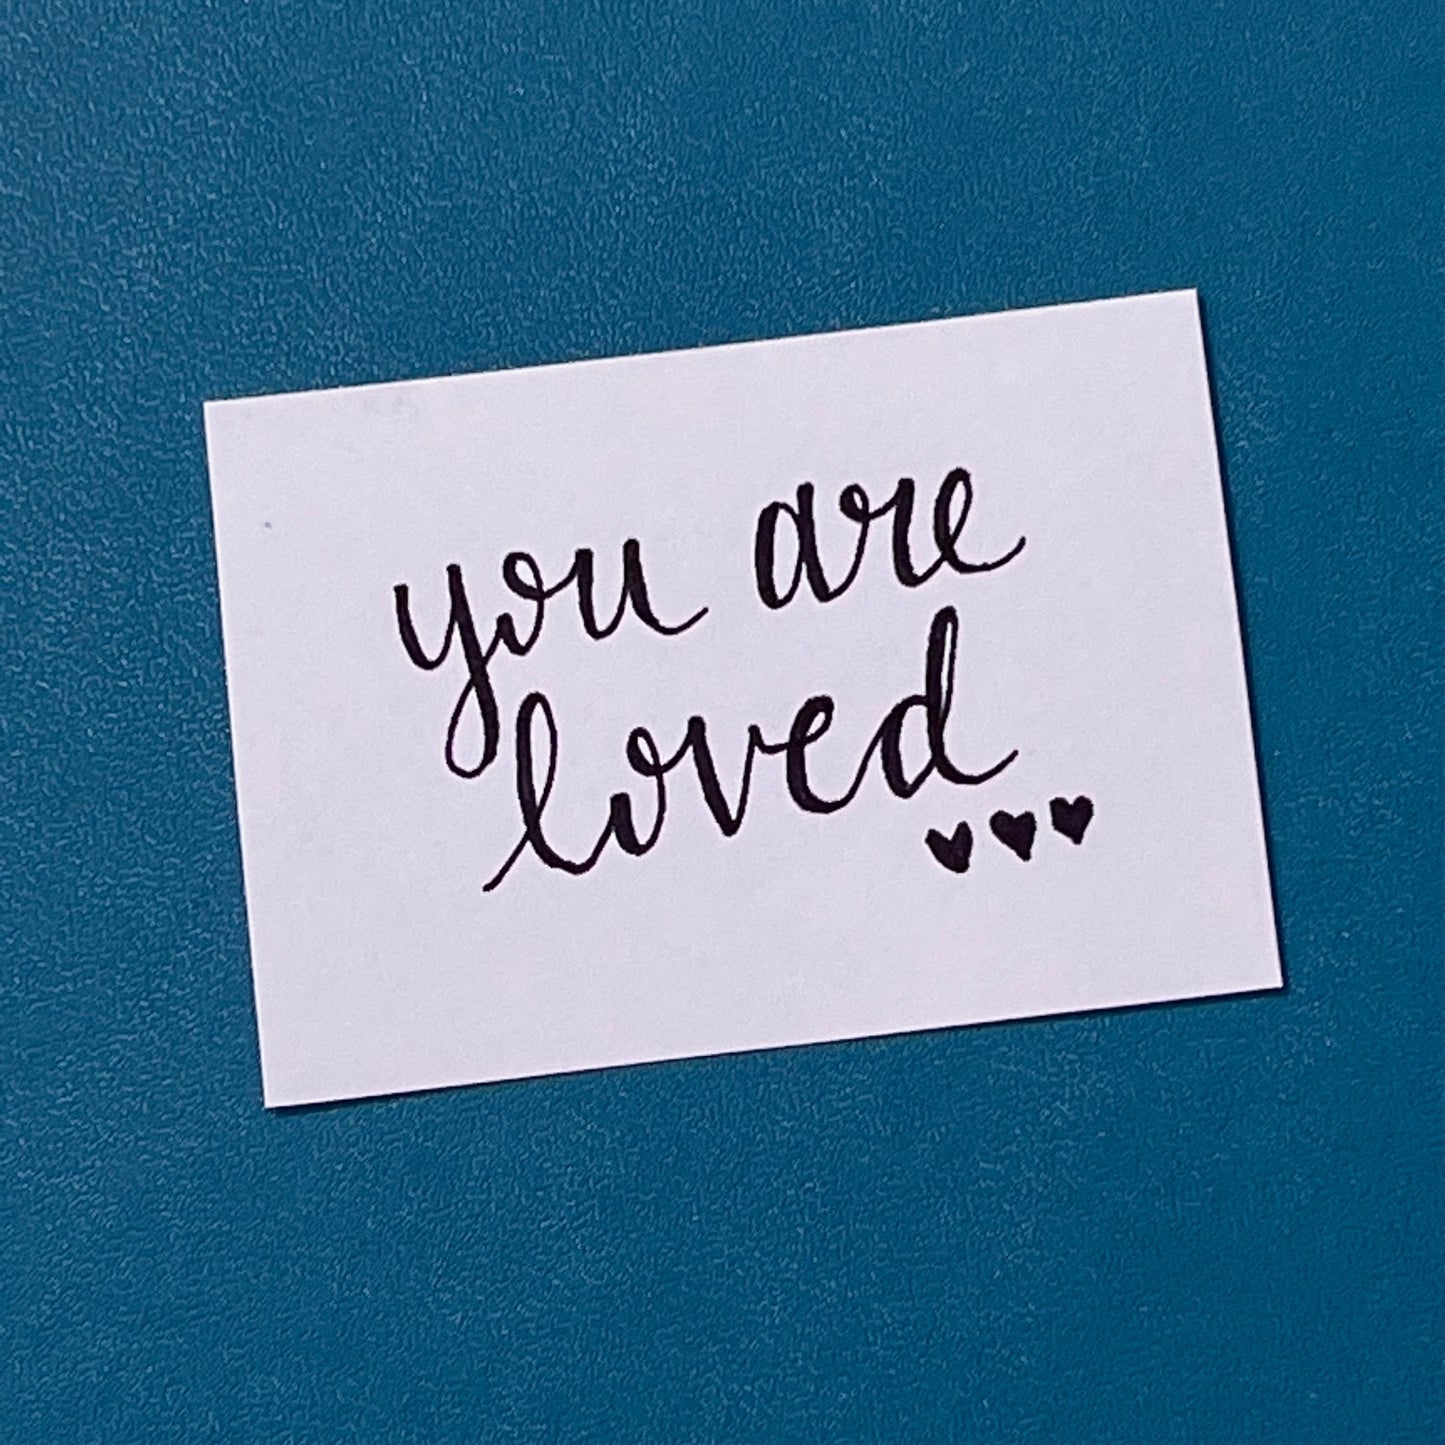 you are
loved